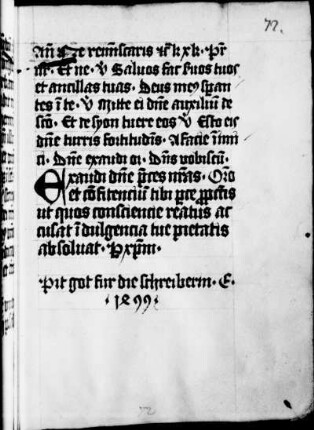 72.
Añ Ne reminiscaris kł xk. Pr̃
nr̃. Et ne. V̷ Saluos fac ſuos tuos
et ancillas tuas. Deus meꝯ ſperan
tes ī te. V̷ Mitte ei dñe auxiliū de
sc̃o. Et de syon tuere eos V̷ Esto eis
dñe turris fortitudīs. A facie īimi
ci. Dñe exaudi or̃. Dñs vobiscū.
Exaudi dñe p̃ces nr̃as. Or̃o
et cōfitencium tibi parce pctīs
ut quos consciencie reatus ac
cusat īdulgencia tue pietatis
absoluat. P xp̃m.
Pit got fur die schreiberin. E.
1499
72